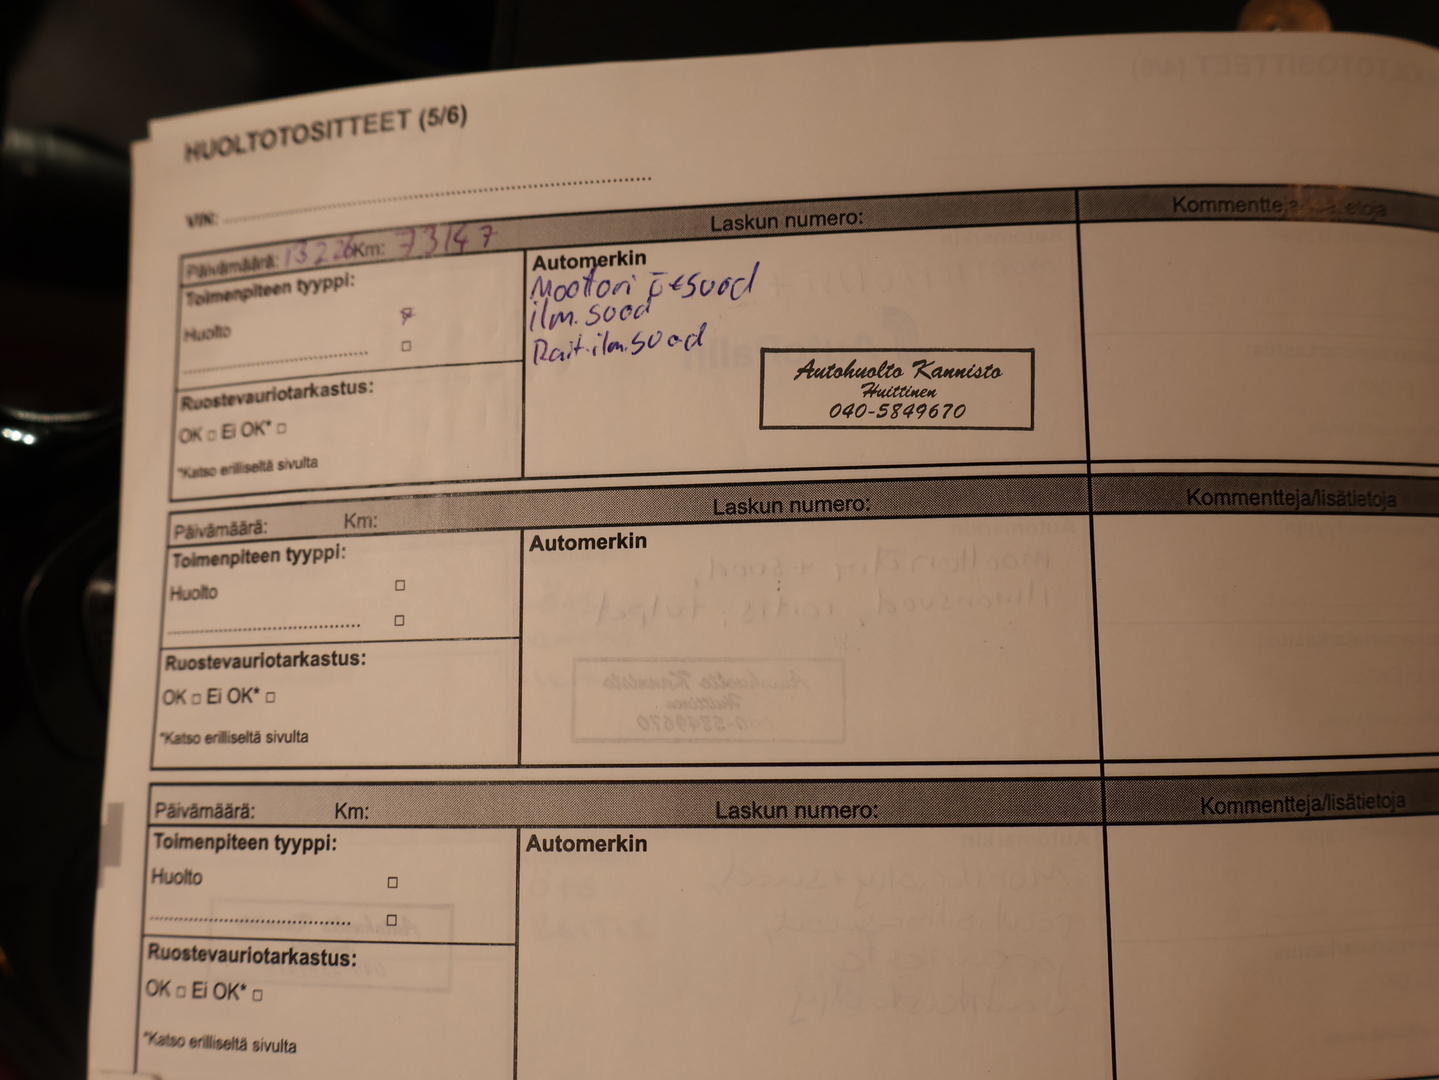 HUOLTOTOSITTEET (5/6)
VIN:
Päivämäärä: 13 2 26 Km: 73147 Laskun numero: Kommentteja/lisätietoja
Toimenpiteen tyyppi:
Huolto
Ruostevauriotarkastus:
OK □ Ei OK* □
*Katso erilliseltä sivulta
Automerkin
Moottori suod
ilm. suod
Rait.ilm.suod
Autohuolto Kannisto
Huittinen
040-5849670
Päivämäärä: Km: Laskun numero: Kommentteja/lisätietoja
Toimenpiteen tyyppi:
Huolto □
□
Ruostevauriotarkastus:
OK □ Ei OK* □
*Katso erilliseltä sivulta
Automerkin
Päivämäärä: Km: Laskun numero: Kommentteja/lisätietoja
Toimenpiteen tyyppi:
Huolto □
□
Ruostevauriotarkastus:
OK □ Ei OK* □
*Katso erilliseltä sivulta
Automerkin